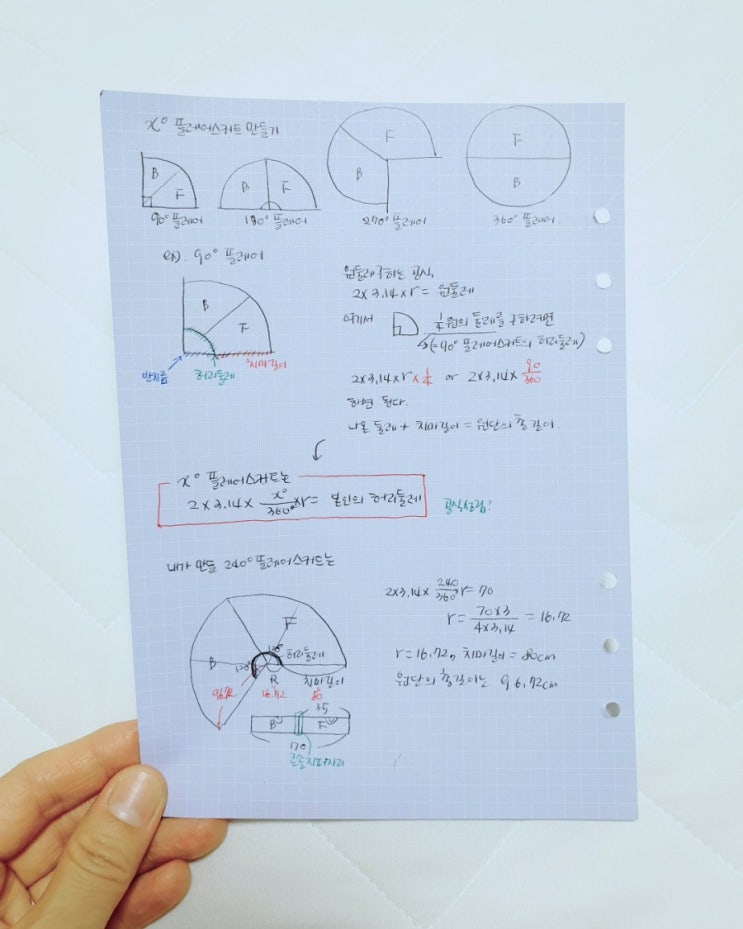 x° 플레어스커트 만들기
B F
90° 플레어
B F
180° 플레어
F
B
270° 플레어
F
B
360° 플레어.
ex). 90° 플레어
B
F
반지름
허리둘레
치마길이
원둘레 구하는 공식,
2×3.14×r = 원둘레
여기서 1/4원의 둘레를 구하려면
(=90° 플레어스커트의 허리둘레)
2×3.14×r×1/4 or 2×3.14×90/360
하면 된다.
나온 둘레 + 치마길이 = 원단의 총길이.
x° 플레어스커트는
2×3.14×x°/360°×r = 본인의 허리둘레
공식성립!
내가 만들 240° 플레어스커트는
F
B
120°
120°
허리둘레
R
치마길이
96.72
16.72
80
35
B
F
70
콘솔지퍼자리
2×3.14×240/360 r = 70
r = 70×3/4×3.14 = 16.72
r = 16.72, 치마길이 = 80cm
원단의 총길이는 96.72cm